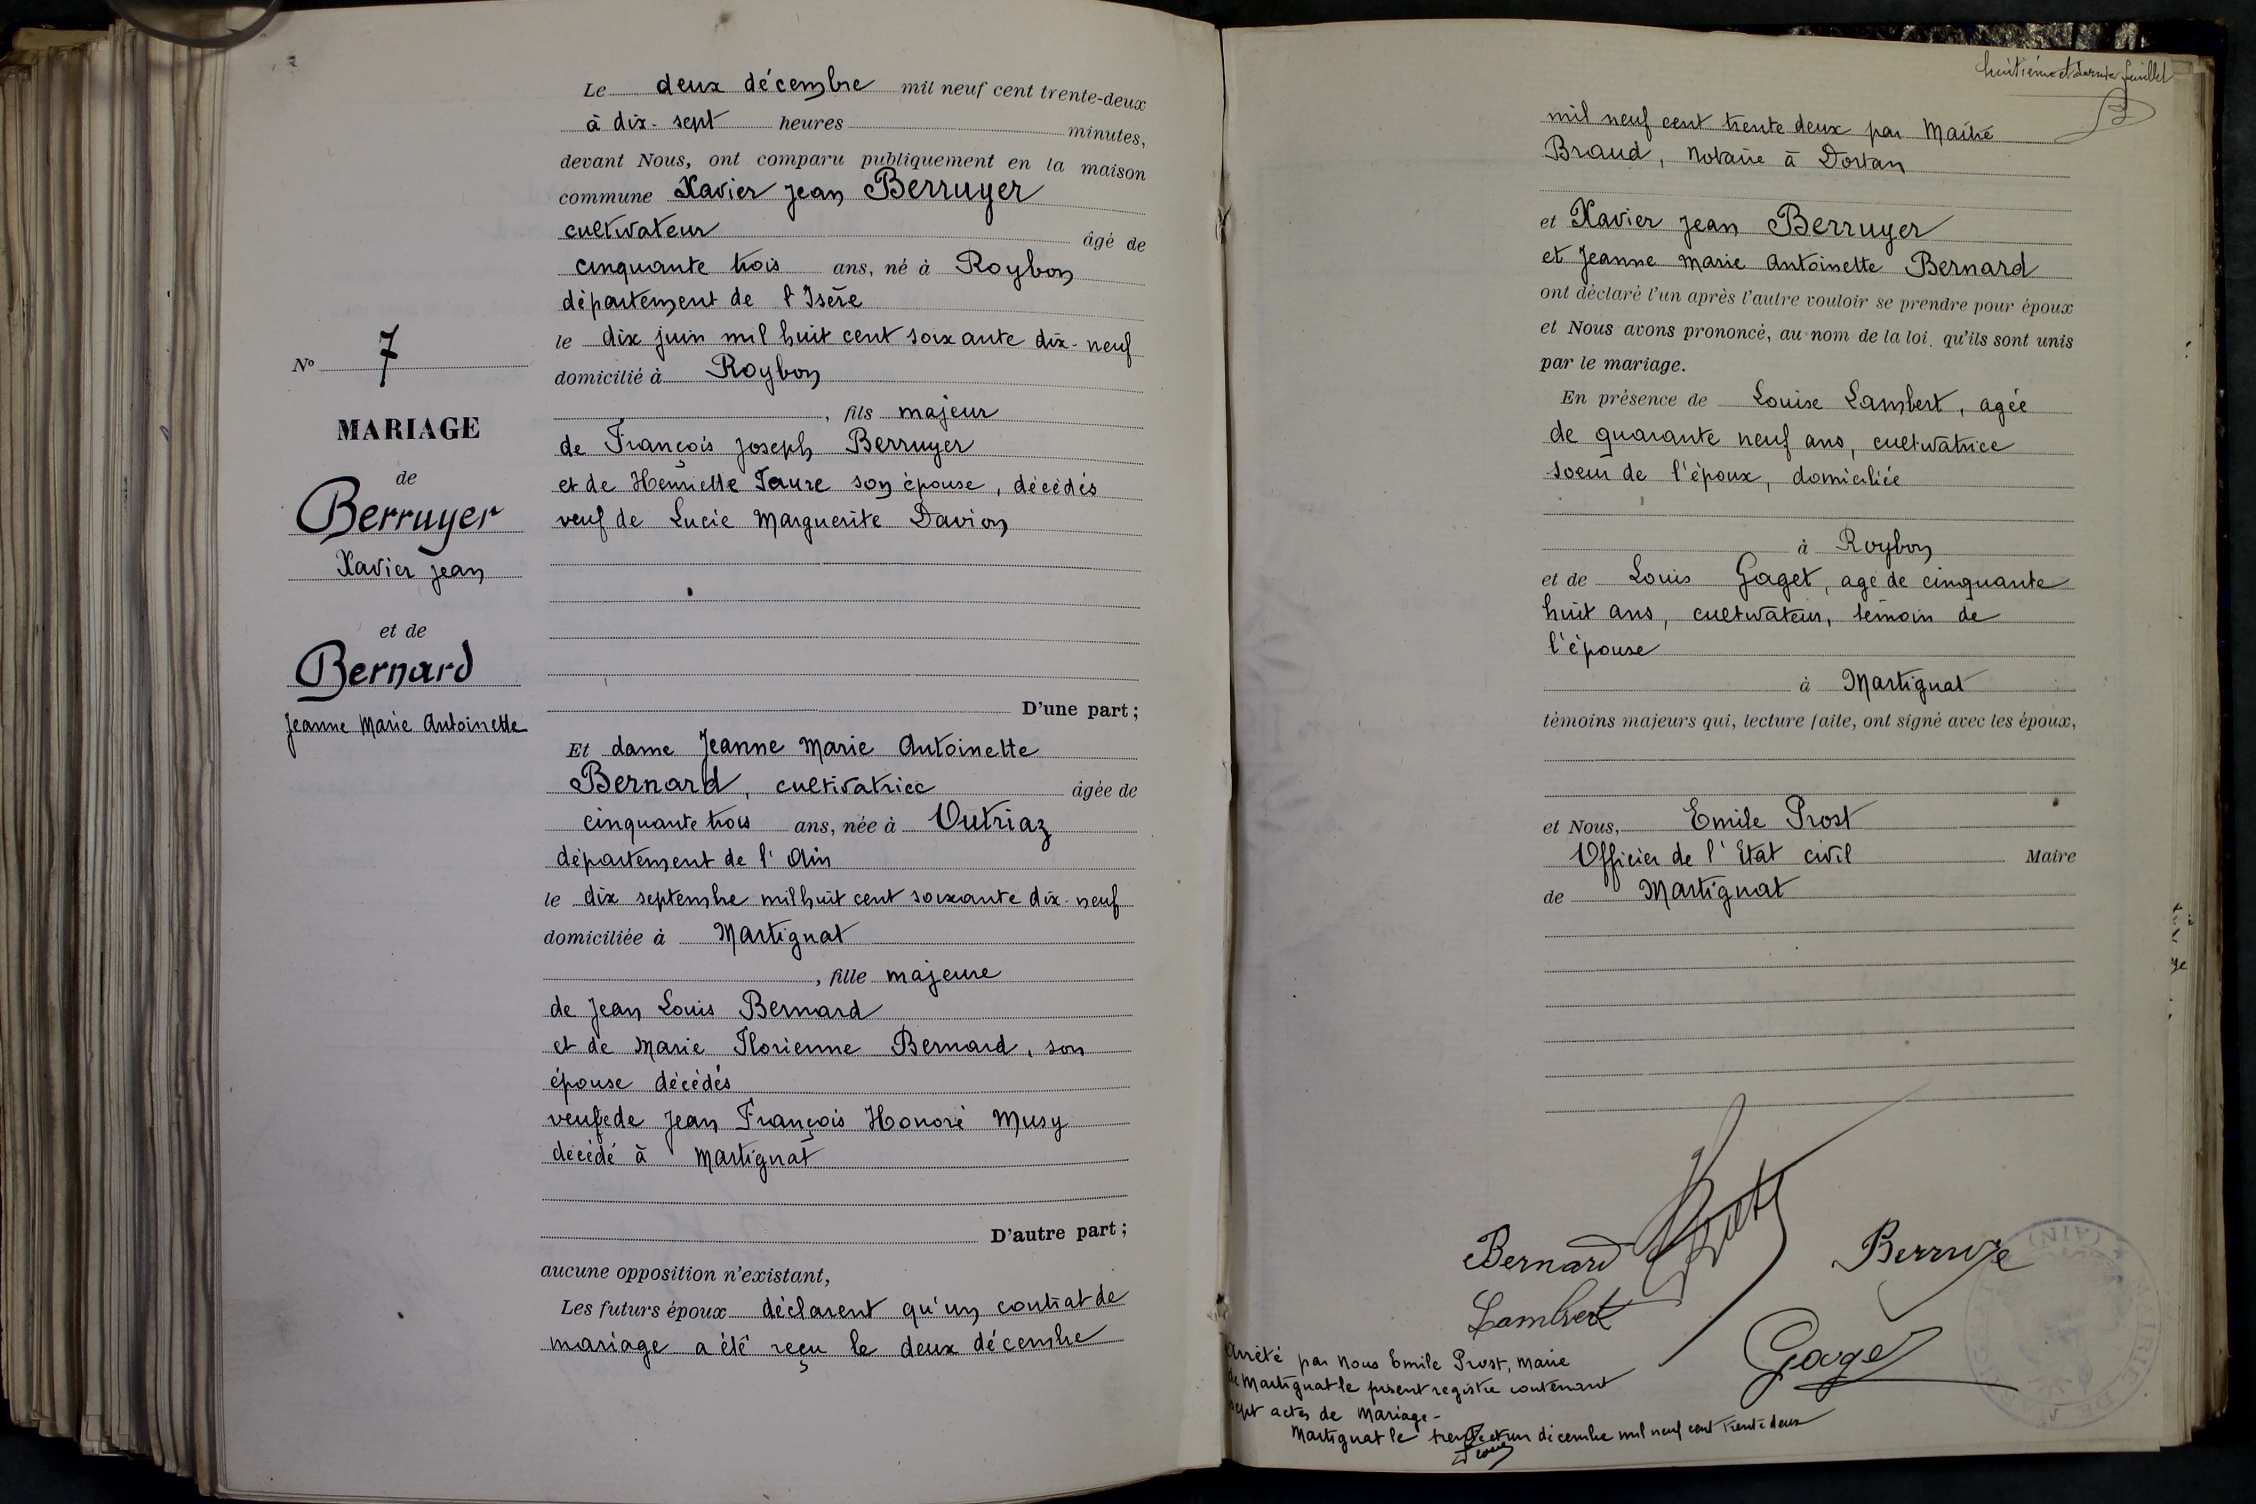 Le deux décembre mil neuf cent trente-deux
à dix-sept heures minutes,
devant Nous, ont comparu publiquement en la maison
commune Xavier Jean Berruyer
cultivateur âgé de
cinquante trois ans, né à Roybon
département de l'Isère
le dix juin mil huit cent soixante dix-neuf
domicilié à Roybon
, fils majeur
de François Joseph Berruyer
et de Henriette Faure son épouse, décédés
veuf de Lucie Marguerite Davion
D'une part;
Nº 7
MARIAGE
de
Berruyer
Xavier Jean
et de
Bernard
Jeanne Marie Antoinette
Et dame Jeanne Marie Antoinette
Bernard, cultivatrice âgée de
cinquante trois ans, née à Outriaz
département de l'Ain
le dix septembre mil huit cent soixante dix-neuf
domiciliée à Martignat
, fille majeure
de Jean Louis Bernard
et de Marie Florienne Bernard, son
épouse décédés
veuve de Jean François Honoré Musy
décédé à Martignat
D'autre part;
aucune opposition n'existant,
Les futurs époux déclarent qu'un contrat de
mariage a été reçu le deux décembre
huitième et dernier feuillet
mil neuf cent trente deux par Maître
Braud, Notaire à Dortan
et Xavier Jean Berruyer
et Jeanne Marie Antoinette Bernard
ont déclaré l'un après l'autre vouloir se prendre pour époux
et Nous avons prononcé, au nom de la loi, qu'ils sont unis
par le mariage.
En présence de Louise Lambert, agée
de quarante neuf ans, cultivatrice
soeur de l'époux, domiciliée
à Roybon
et de Louis Gaget, agé de cinquante
huit ans, cultivateur, témoin de
l'épouse
à Martignat
témoins majeurs qui, lecture faite, ont signé avec les époux,
et Nous, Emile Prost
Officier de l'Etat civil Maire
de Martignat
Bernard Prost Berruye
Lambert
Gaget
Arrêté par Nous Emile Prost, Maire
de Martignat le présent registre contenant
sept actes de Mariage -
Martignat le trente et un décembre mil neuf cent trente deux
MAIRIE DE
(AIN)